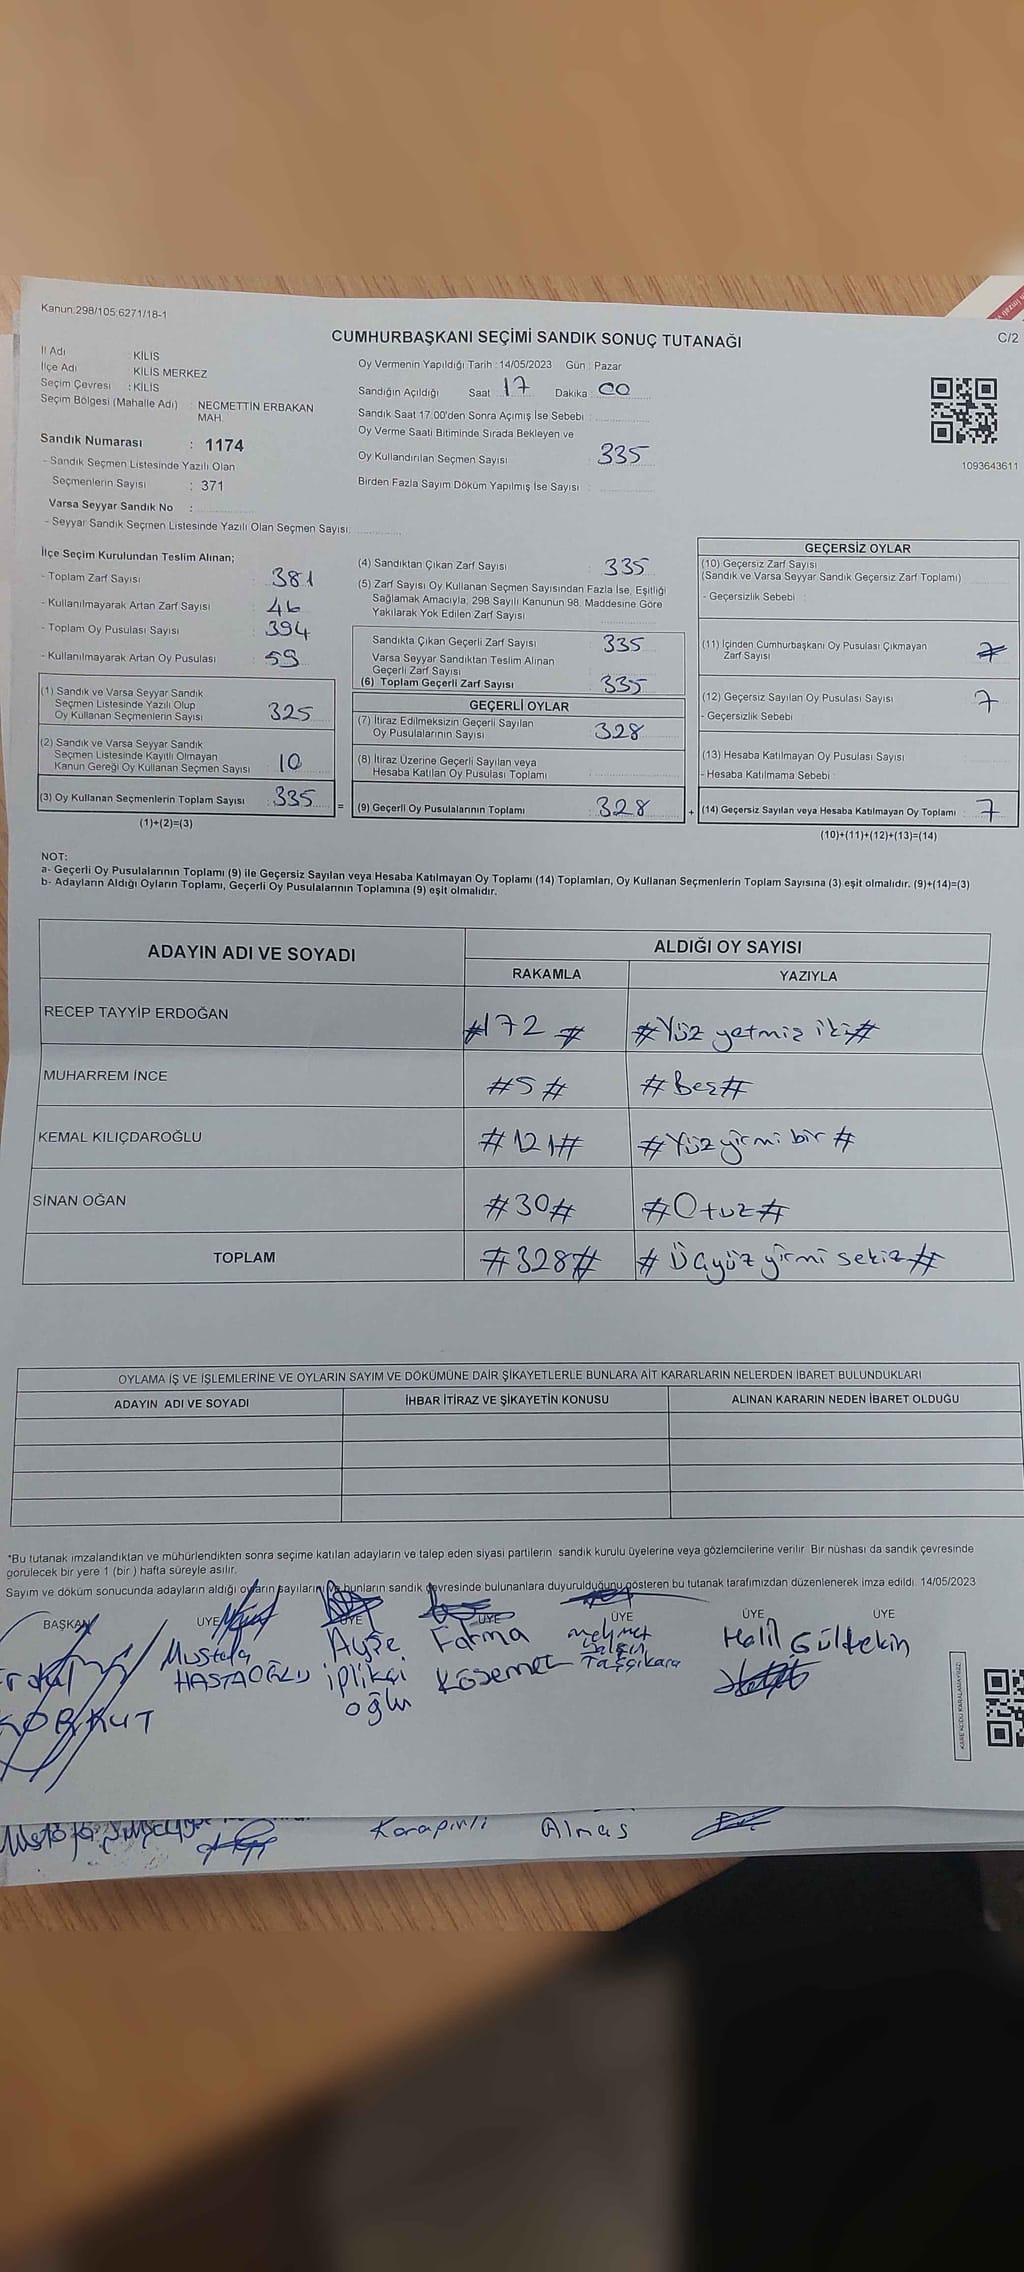 Kanun:298/105:6271/18-1
CUMHURBAŞKANI SEÇİMİ SANDIK SONUÇ TUTANAĞI
C/2
İl Adı : KİLİS
İlçe Adı : KİLİS MERKEZ
Seçim Çevresi : KİLİS
Seçim Bölgesi (Mahalle Adı) : NECMETTİN ERBAKAN
MAH.
Sandık Numarası : 1174
- Sandık Seçmen Listesinde Yazılı Olan
Seçmenlerin Sayısı : 371
Varsa Seyyar Sandık No :
- Seyyar Sandık Seçmen Listesinde Yazılı Olan Seçmen Sayısı:
Oy Vermenin Yapıldığı Tarih : 14/05/2023 Gün : Pazar
Sandığın Açıldığı Saat 17 Dakika : 00
Sandık Saat 17:00'den Sonra Açımış İse Sebebi :
Oy Verme Saati Bitiminde Sırada Bekleyen ve
Oy Kullandırılan Seçmen Sayısı : 335
Birden Fazla Sayım Döküm Yapılmış İse Sayısı :
1093643611
İlçe Seçim Kurulundan Teslim Alınan;
- Toplam Zarf Sayısı : 381
- Kullanılmayarak Artan Zarf Sayısı : 46
- Toplam Oy Pusulası Sayısı : 394
- Kullanılmayarak Artan Oy Pusulası : 59
(1) Sandık ve Varsa Seyyar Sandık
Seçmen Listesinde Yazılı Olup
Oy Kullanan Seçmenlerin Sayısı : 325
(2) Sandık ve Varsa Seyyar Sandık
Seçmen Listesinde Kayıtlı Olmayan
Kanun Gereği Oy Kullanan Seçmen Sayısı : 10
(3) Oy Kullanan Seçmenlerin Toplam Sayısı : 335
(1)+(2)=(3)
(4) Sandıktan Çıkan Zarf Sayısı : 335
(5) Zarf Sayısı Oy Kullanan Seçmen Sayısından Fazla İse, Eşitliği
Sağlamak Amacıyla, 298 Sayılı Kanunun 98. Maddesine Göre
Yakılarak Yok Edilen Zarf Sayısı :
Sandıkta Çıkan Geçerli Zarf Sayısı : 335
Varsa Seyyar Sandıktan Teslim Alınan
Geçerli Zarf Sayısı
(6) Toplam Geçerli Zarf Sayısı : 335
GEÇERLİ OYLAR
(7) İtiraz Edilmeksizin Geçerli Sayılan
Oy Pusulalarının Sayısı : 328
(8) İtiraz Üzerine Geçerli Sayılan veya
Hesaba Katılan Oy Pusulası Toplamı :
= (9) Geçerli Oy Pusulalarının Toplamı : 328
GEÇERSİZ OYLAR
(10) Geçersiz Zarf Sayısı
(Sandık ve Varsa Seyyar Sandık Geçersiz Zarf Toplamı)
- Geçersizlik Sebebi :
(11) İçinden Cumhurbaşkanı Oy Pusulası Çıkmayan
Zarf Sayısı
(12) Geçersiz Sayılan Oy Pusulası Sayısı : 7
- Geçersizlik Sebebi
(13) Hesaba Katılmayan Oy Pusulası Sayısı :
- Hesaba Katılmama Sebebi :
+ (14) Geçersiz Sayılan veya Hesaba Katılmayan Oy Toplamı : 7
(10)+(11)+(12)+(13)=(14)
NOT:
a- Geçerli Oy Pusulalarının Toplamı (9) ile Geçersiz Sayılan veya Hesaba Katılmayan Oy Toplamı (14) Toplamları, Oy Kullanan Seçmenlerin Toplam Sayısına (3) eşit olmalıdır. (9)+(14)=(3)
b- Adayların Aldığı Oyların Toplamı, Geçerli Oy Pusulalarının Toplamına (9) eşit olmalıdır.
ADAYIN ADI VE SOYADI ALDIĞI OY SAYISI
RAKAMLA YAZIYLA
RECEP TAYYİP ERDOĞAN #172# #Yüz yetmiş iki#
MUHARREM İNCE #5# #Beş#
KEMAL KILIÇDAROĞLU #121# #Yüz yirmi bir#
SİNAN OĞAN #30# #Otuz#
TOPLAM #328# #Üçyüz yirmi sekiz#
OYLAMA İŞ VE İŞLEMLERİNE VE OYLARIN SAYIM VE DÖKÜMÜNE DAİR ŞİKAYETLERLE BUNLARA AİT KARARLARIN NELERDEN İBARET BULUNDUKLARI
ADAYIN ADI VE SOYADI İHBAR İTİRAZ VE ŞİKAYETİN KONUSU ALINAN KARARIN NEDEN İBARET OLDUĞU
*Bu tutanak imzalandıktan ve mühürlendikten sonra seçime katılan adayların ve talep eden siyasi partilerin sandık kurulu üyelerine veya gözlemcilerine verilir. Bir nüshası da sandık çevresinde
görülecek bir yere 1 (bir) hafta süreyle asılır.
Sayım ve döküm sonucunda adayların aldığı oyların sayıların ve bunların sandık çevresinde bulunanlara duyurulduğunu gösteren bu tutanak tarafımızdan düzenlenerek imza edildi. 14/05/2023
BAŞKAN ÜYE ÜYE ÜYE ÜYE ÜYE ÜYE
Mustafa Ayşe Fatma Mehmet Halil Gültekin
HASTAOĞLU iplikçi Kösemet Taşçıkara
oğlu
KORKUT
KARE KODU KARALAMAYINIZ!
Karapirli Almas